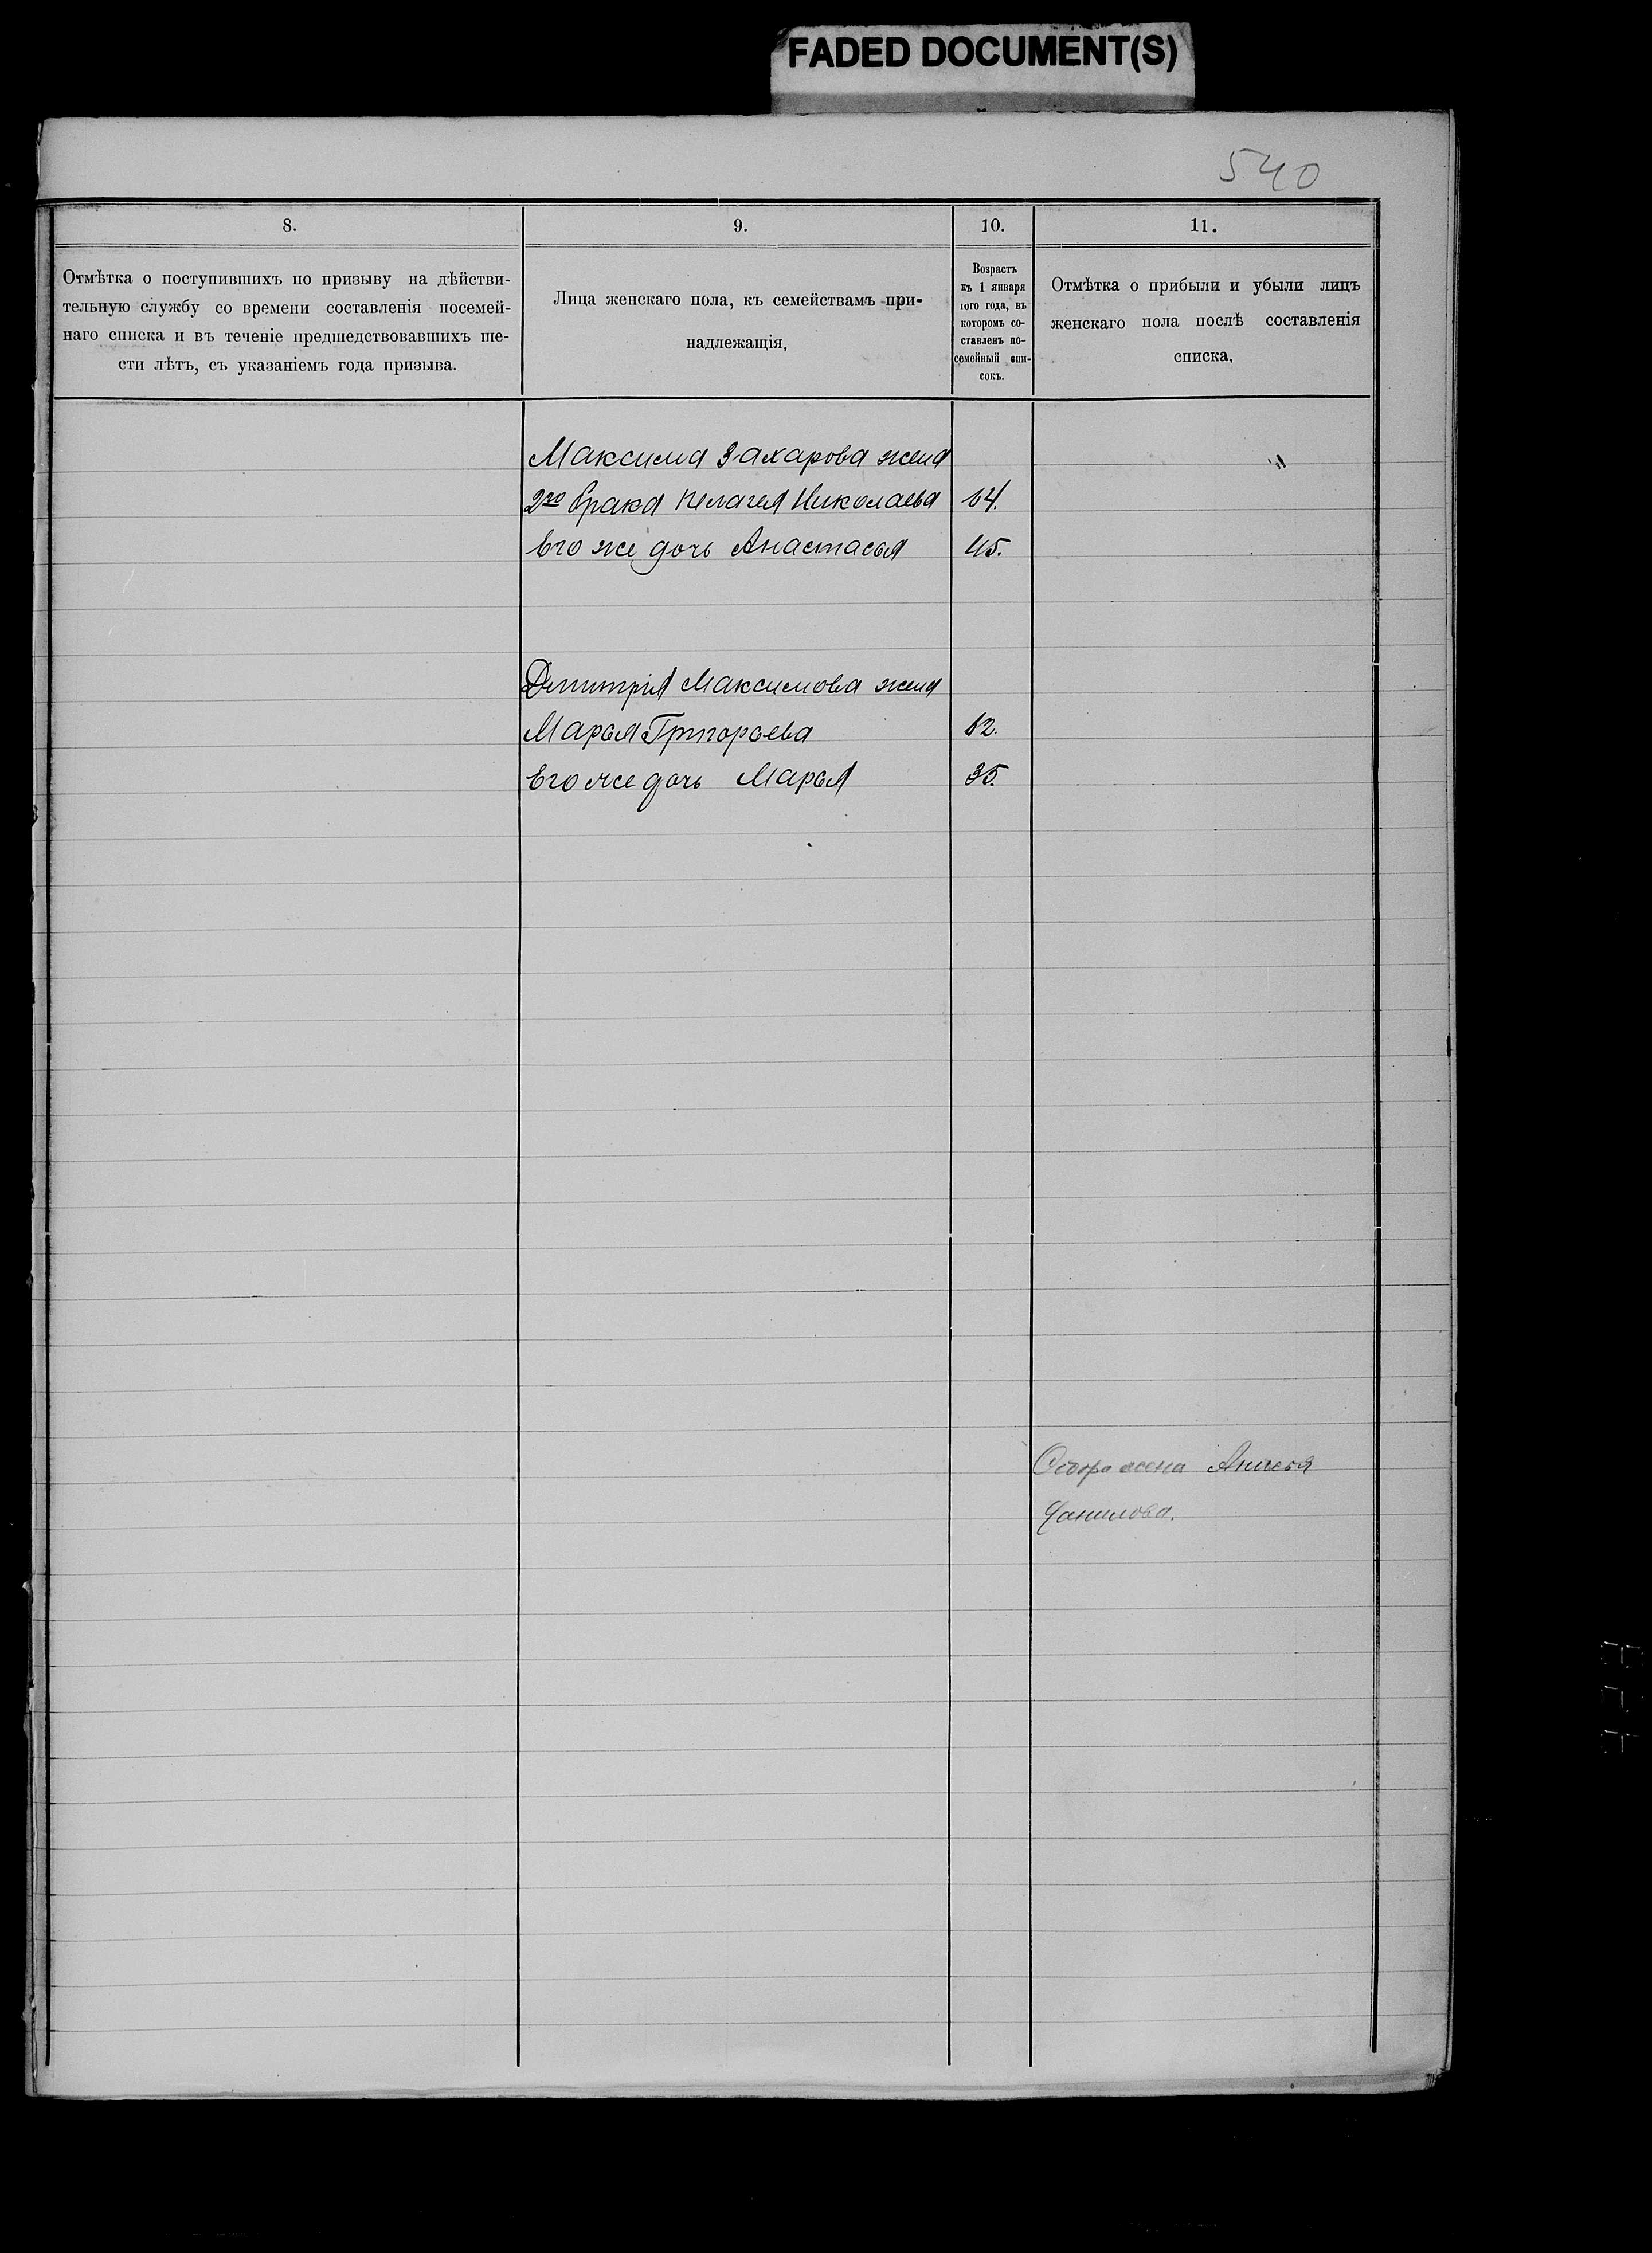 FADED DOCUMENT(S)
540
8.
9.
10.
11.
Отмѣтка о поступившихъ по призыву на дѣйстви-
тельную службу со времени составленія посемей-
наго списка и въ теченіе предшедствовавшихъ ше-
сти лѣтъ, съ указаніемъ года призыва.
Лица женскаго пола, къ семействамъ при-
надлежащія,
Возрастъ
къ 1 января
1ого года, въ
которомъ со-
ставленъ по-
семейный спи-
сокъ.
Отмѣтка о прибыли и убыли лицъ
женскаго пола послѣ составленія
списка,
Максима Захарова жена
2го брака Пелагея Николаева 64.
Его же дочь Анастасья 45.
Дмитрія Максимова жена
Марья Григорьева 62.
Его же дочь Марья 35.
жена Анисья
Данилова.